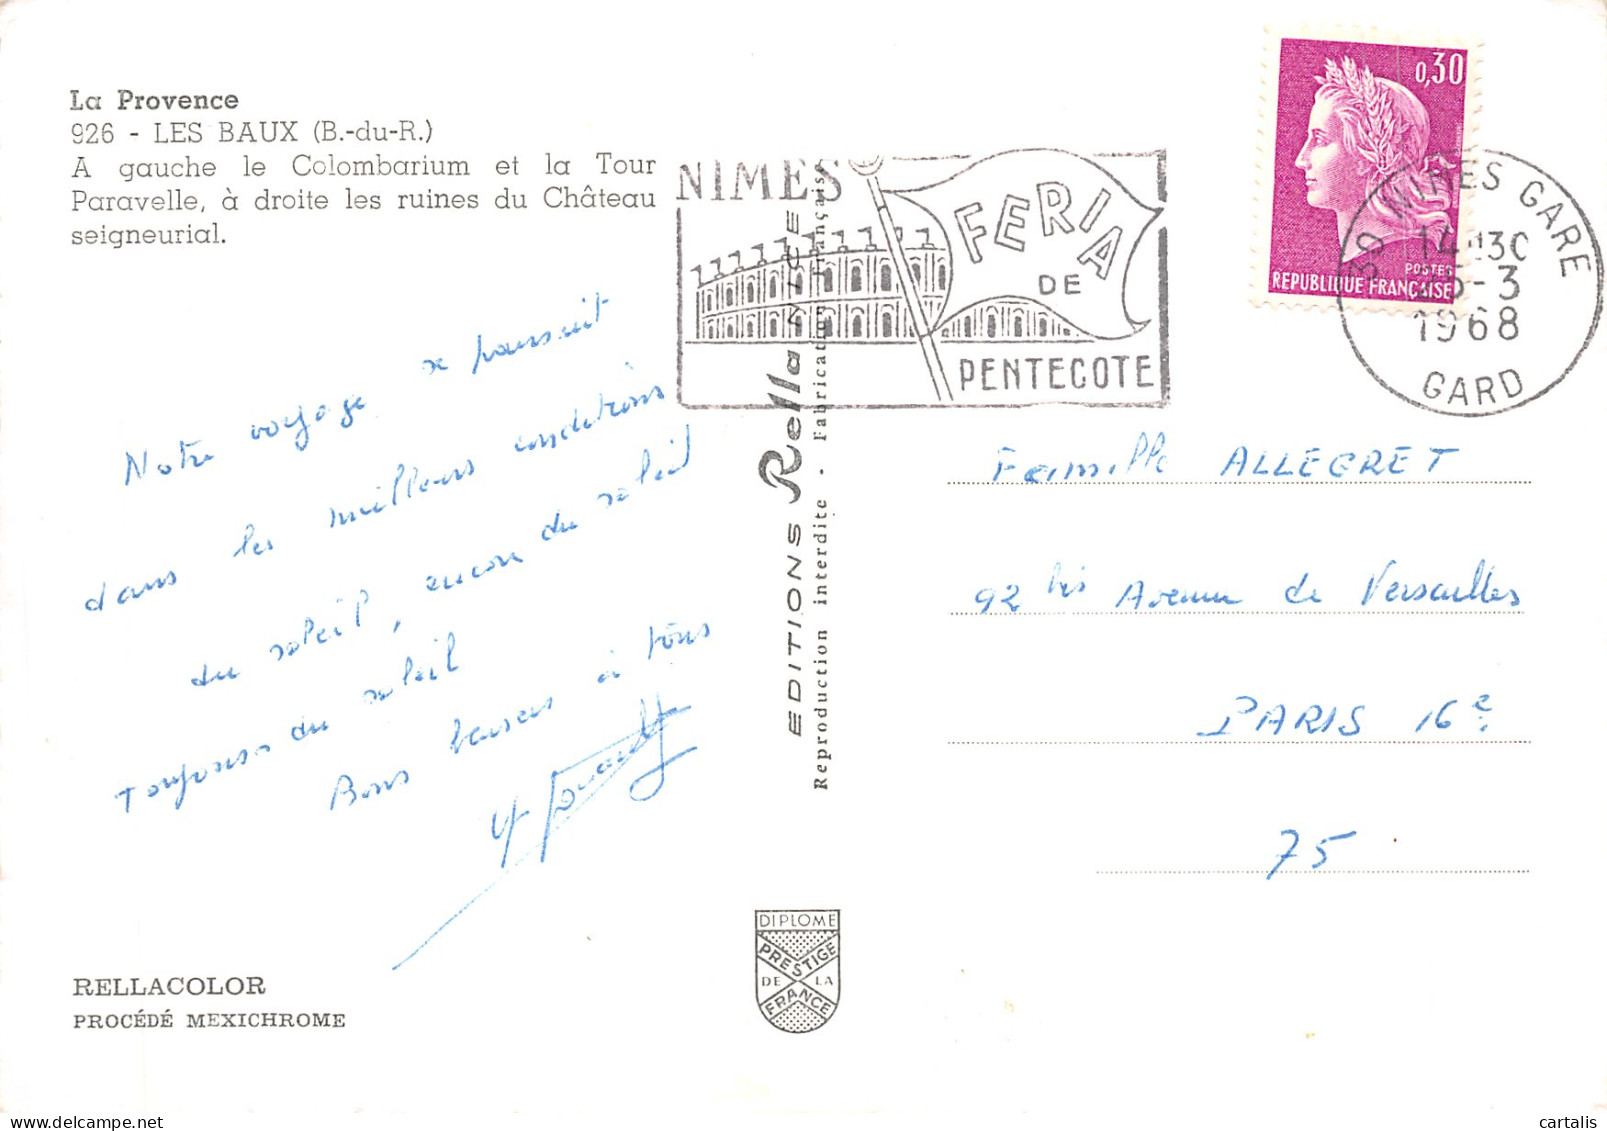 La Provence
926 - LES BAUX (B.-du-R.)
A gauche le Colombarium et la Tour
Paravelle, à droite les ruines du Château
seigneurial.
NIMES
FERIA
DE
PENTECOTE
0,30
POSTES
REPUBLIQUE FRANÇAISE
30 NIMES GARE
14H30
25-3
1968
GARD
Notre voyage se poursuit
dans les meilleurs conditions
du soleil, encore du soleil
Toujours du soleil
Bons baisers à tous
EDITIONS Rella NICE
Reproduction interdite - Fabrication Française
Famille ALLEGRET
92 bis Avenue de Versailles
PARIS 16e
75
DIPLOME
PRESTIGE
DE LA
FRANCE
RELLACOLOR
PROCÉDÉ MEXICHROME
cartalis
www.delcampe.net